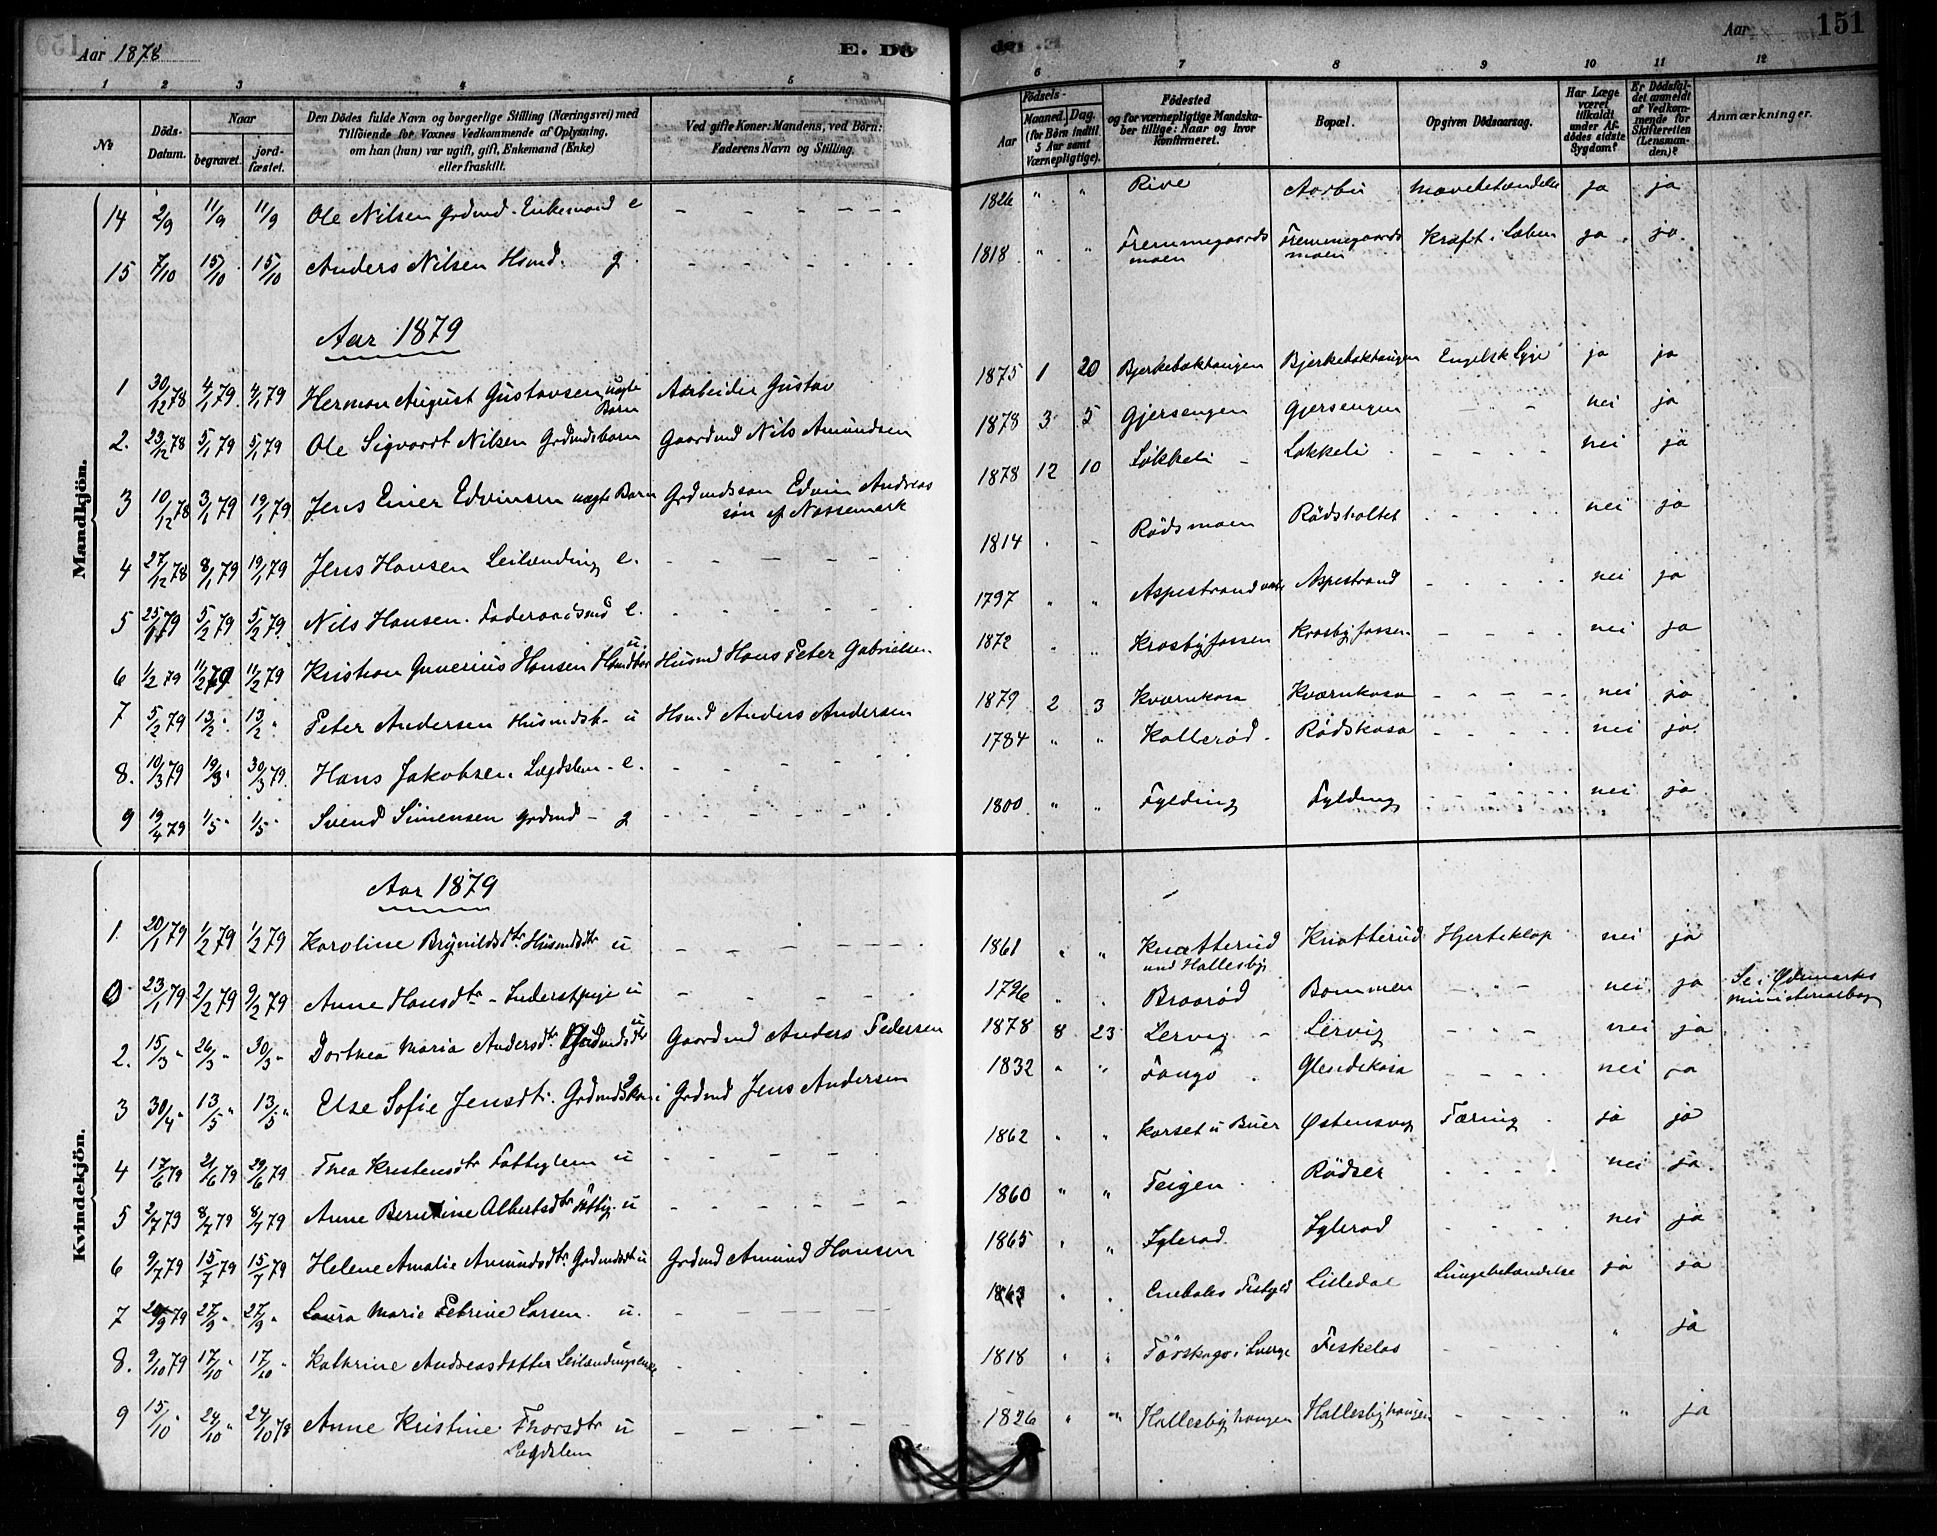 Aar 1878 E. Dö
1 2 3 4 5
№ Döds-Datum. Naar begravet. jord-fæstet. Den Dödes fulde Navn og borgerlige Stilling (Næringsvei) med Tilföiende for Voxnes Vedkommende af Oplysning, om han (hun) var ugift, gift, Enkemand (Enke) eller fraskilt. Ved gifte Koner: Mandens, ved Börn: Faderens Navn og Stilling.
Mandkjön.
14 2/9 11/9 11/9 Ole Nilsen Grdmd. Enkemand e
15 7/10 15/10 15/10 Anders Nilsen Hsmd. g
Aar 1879
1 30/12 78 4/1 79 4/1 79 Herman August Gustavsen uægte Barn Aarbeider Gustav
2. 23/12 78 5/1 79 5/1 79 Ole Sigvart Nilsen Grdmdsbarn Gaardmd Nils Amundsen
3 10/12 78 3/1 79 19/1 79 Jens Einer Edvinsen uægte Barn Grdmdssøn Edvin Andreas
søn af Nøssemark
4 27/12 78 8/1 79 19/1 79 Jens Hansen Leilænding e.
5 25/1 79 5/2 79 5/2 79 Nils Hansen. Føderaadsmd e.
6 1/2 79 11/2 79 11/2 79 Kristian Hansen u Husmd Hans Peter Gabrielsen
7 5/2 79 13/2 " 13/2 " Peter Andersen Husmdsb. u Hsmd Anders Andersen
8. 10/3 79 19/3 " 30/3 79 Hans Jakobsen. Lægdslem - e.
9 19/4 79 1/5 " 1/5 " Svend Simensen Grdmd - g
Kvindekjön.
Aar 1879
1. 20/1 79 1/2 79 1/2 79 Karoline Brynildsdtr Husmdsdtr u
0 23/1 79 2/2 79 9/2 79 Anne Hansdtr - Inderstpige u
2. 15/3 " 26/3 " 30/3 " Dorthea Maria Andersdtr. Grdmdsdtr u Gaardmd Anders Pedersen
3 30/4 " 13/5 " 13/5 " Else Sofie Jensdtr. Grdmdskone g Grdmd Jens Andersen
4 17/6 79 21/6 79 29/6 79 Thea Kristensdtr Fattiglem u
5 2/7 79 8/7 79 8/7 79 Anne Berntine Albertsdtr u
6 9/7 79 15/7 79 15/7 79 Helene Amalie Amundsdtr Grdmdsdtr u Grdmd Amund Hansen
7 20/9 79 27/9 " 27/9 " Laura Marie Petrine Larsen. u.
8. 9/10 79 17/10 " 17/10 " Kathrine Andreasdatter Leilændingsenke e
9 15/10 " 24/10 " 24/10 Anne Kristine Thorsdtr u
Lægdslem
Aar 151
6 7 8 9 10 11 12
Födsels- Aar Maaned. Dag. (for Börn indtil 5 Aar samt Værnepligtige). Födested og for værnepligtige Mandskaber tillige: Naar og hvor konfirmeret. Bopæl. Opgiven Dödsaarsag. Har Læge været tilkaldt under Afdödes sidste Sygdom? Er Dödsfaldet anmeldt af Vedkommende for Skifteretten (Lensmanden)? Anmærkninger.
1826 " " Rive Aarbu Mavebetændelse ja ja
1818 " " Fremmegaards moen Fremmegaards moen Kræft i Læben ja ja
1875 1 20 Bjerkebakhaugen Bjerkebakhaugen Engelsk Syge ja ja
1878 3 5 Gjersengen Gjersengen nei ja
1878 12 10 Løkkeli Løkkeli nei ja
1814 Rødsmoen Rødsholtet nei ja
1797 " " Aspestrand Aspestrand nei ja
1872 " Krosbyfossen Krosbyfossen nei ja
1879 2 3 Kværnkasa Kværnkasa nei ja
1784 " " Kollerød Rødskasa nei ja
1800 " " Fylding Fylding nei ja
1861 " " Knatterud und Hallesby Knatterud Hjerteklap nei ja
1796 " " Braarød Bommen nei ja Se i Ødemarks ministerialbog
1878 8 23 Lervig Lervig nei ja
1832 " " Tangø Glendekasa nei ja
1862 " " Korset u Buer Østensvig Tæring ja ja
1860 " " Teigen Rødser nei ja
1865 " " Iglerød Iglerød nei ja
1863 " " Lilledal Lungebetændelse ja ja
1818 " " Fiskeløs " ja
1826 " " Hallesbyhaugen Hallesbyhaugen " ja